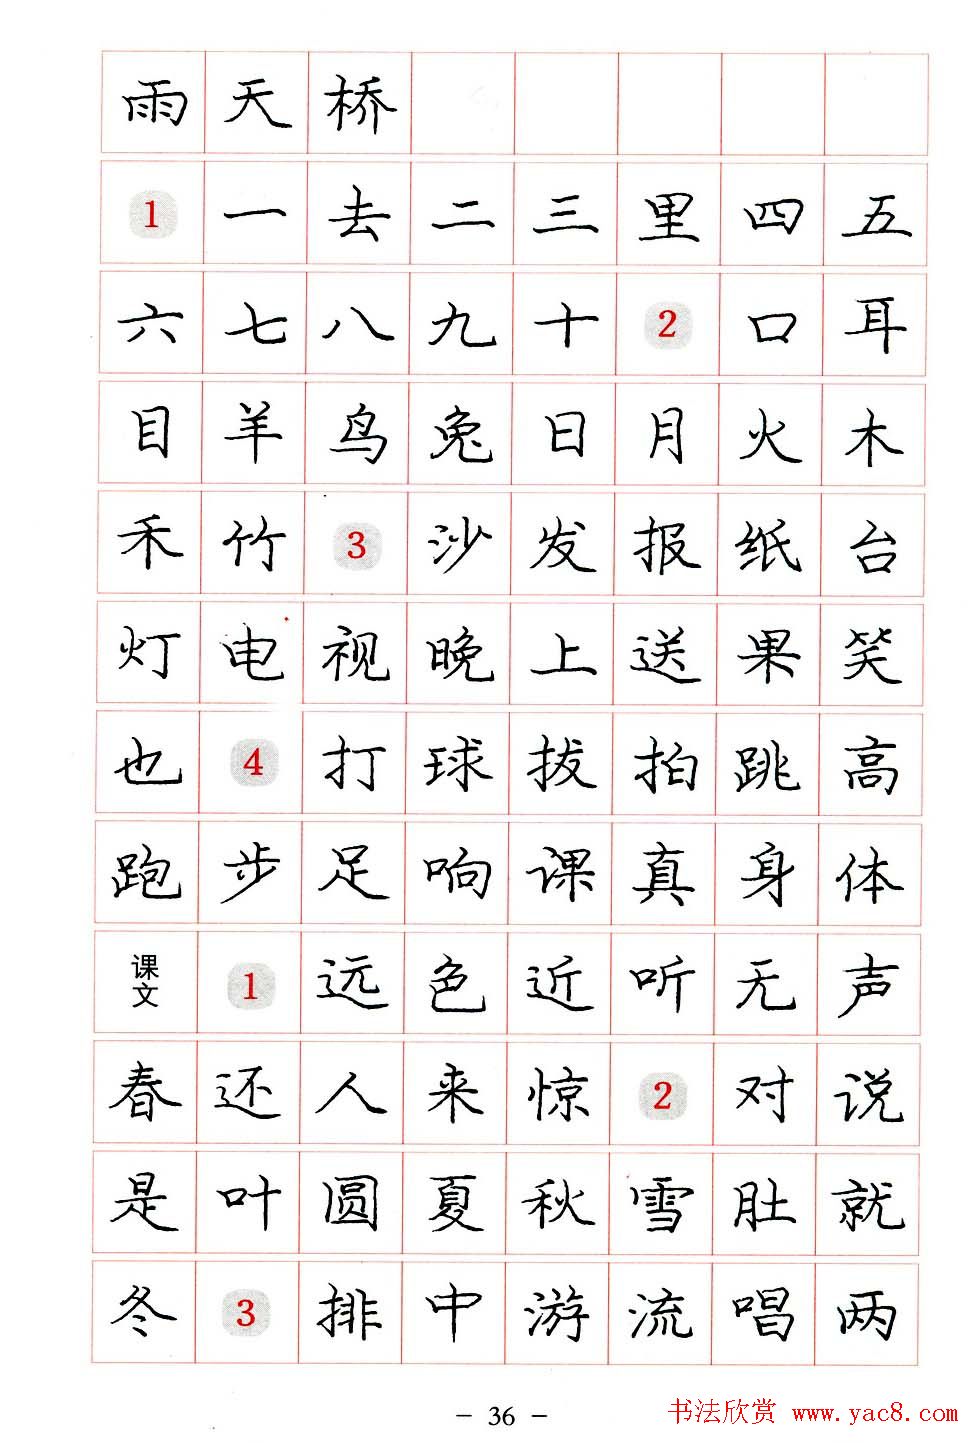 雨天桥
1一去二三里四五
六七八九十2口耳
目羊鸟兔日月火木
禾竹3沙发报纸台
灯电视晚上送果笑
也4打球拔拍跳高
跑步足响课真身体
课文1远色近听无声
春还人来惊2对说
是叶圆夏秋雪肚就
冬3排中游流唱两
- 36 -
书法欣赏 www.yac8.com